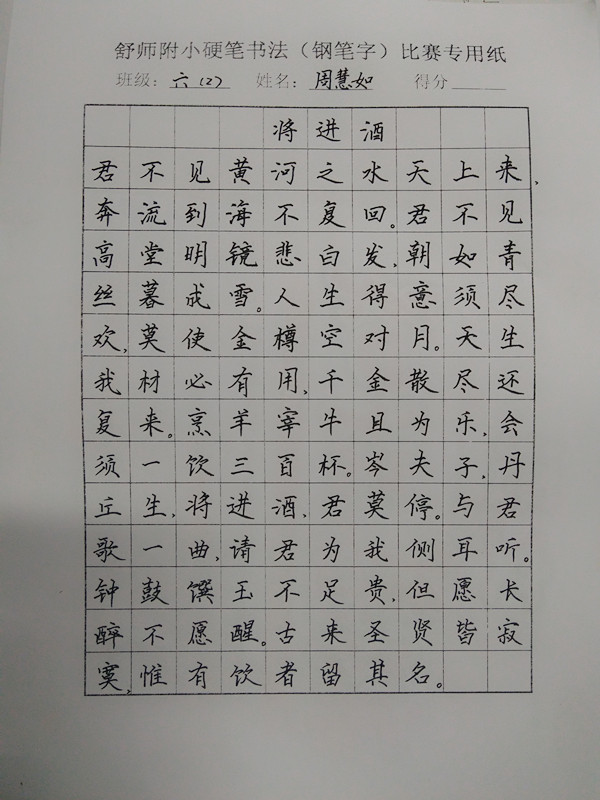 舒师附小硬笔书法（钢笔字）比赛专用纸
班级：六（2） 姓名：周慧如 得分
将进酒
君不见黄河之水天上来，
奔流到海不复回。君不见
高堂明镜悲白发，朝如青
丝暮成雪。人生得意须尽
欢，莫使金樽空对月。天生
我材必有用，千金散尽还
复来。烹羊宰牛且为乐，会
须一饮三百杯。岑夫子，丹
丘生，将进酒，君莫停。与君
歌一曲，请君为我侧耳听。
钟鼓馔玉不足贵，但愿长
醉不愿醒。古来圣贤皆寂
寞，惟有饮者留其名。